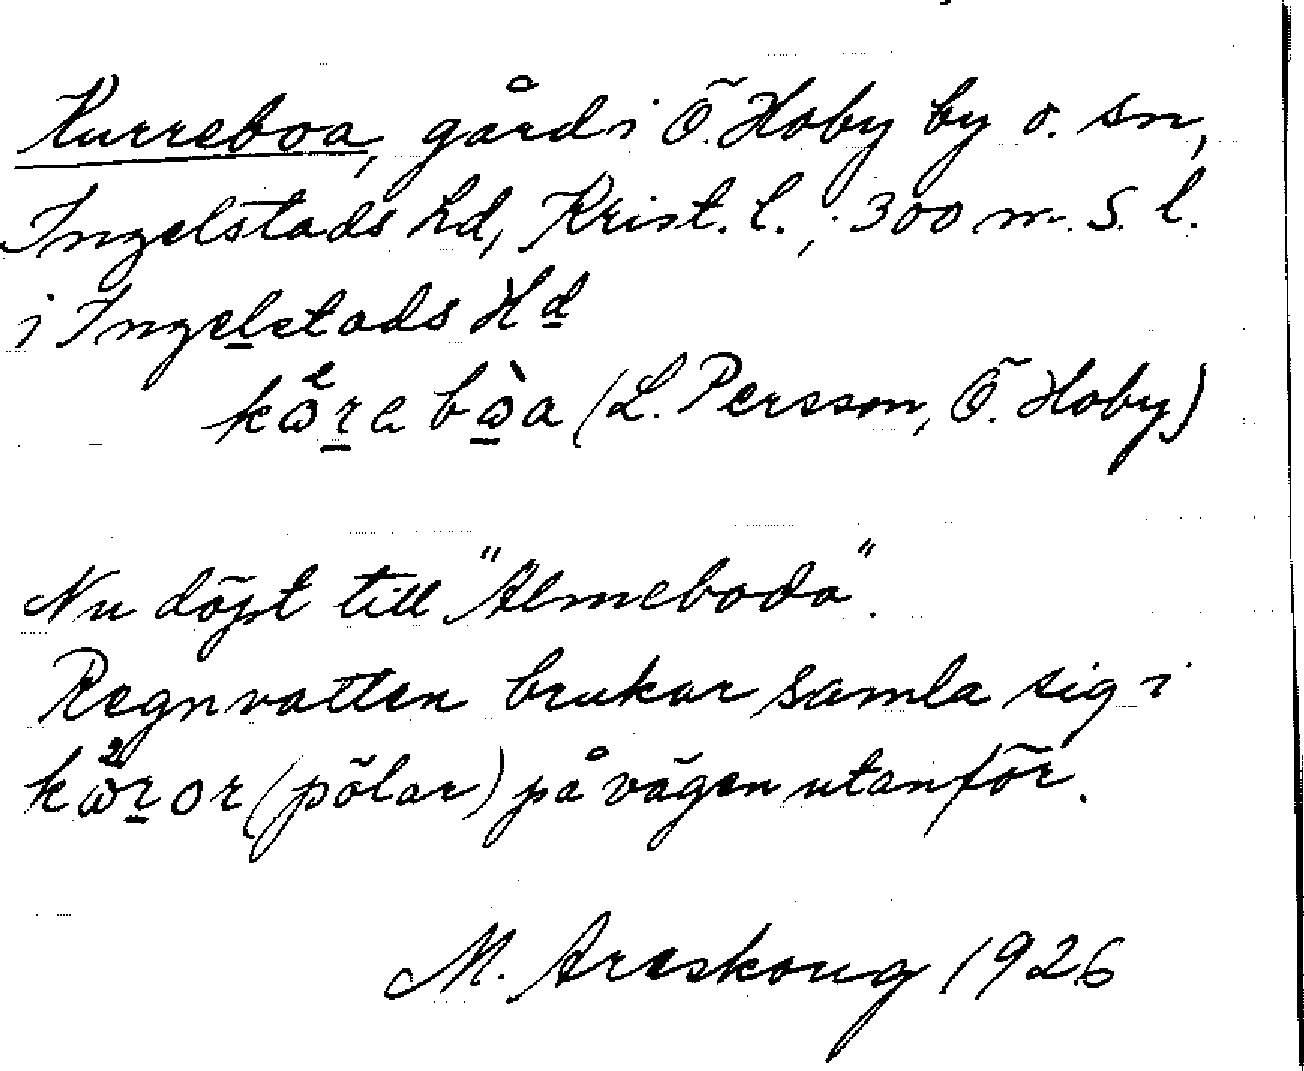 Kurreboa, gård i Ö. Hoby by o. sn,
Ingelstads hd, Krist. l.; 300 m. S. l.
i Ingelstads Hd
(L. Persson, Ö. Hoby)
Nu döpt till "Almeboda".
Regnvatten brukar samla sig i
(pölar) på vägen utanför.
M. Areskoug 1926